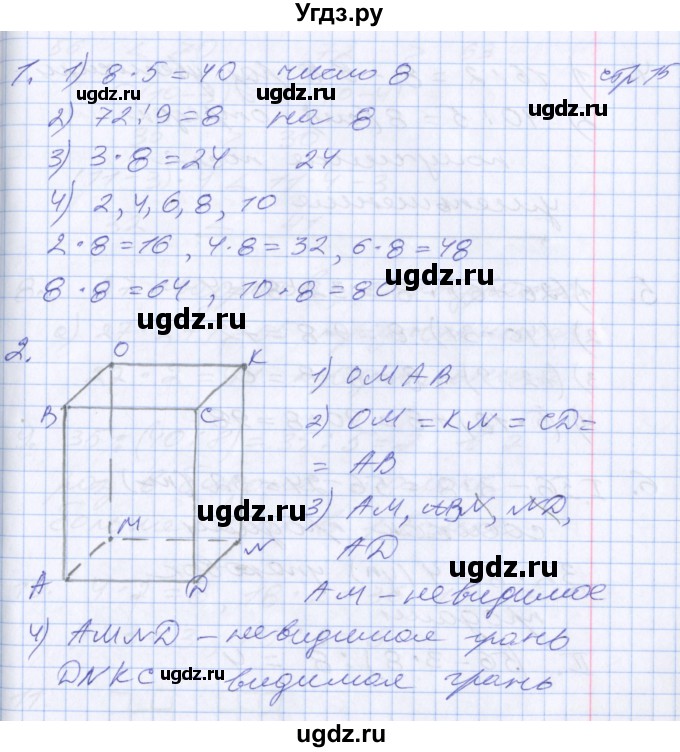 Угдз.ру
1. 1) 8·5=40 число 8 стр 15
ugdz.ru ugdz.ru ugdz.ru
2) 72:9=8 на 8
3) 3·8=24 24
4) 2, 4, 6, 8, 10
2·8=16, 4·8=32, 6·8=48
ugdz.ru
8·8=64, 10·8=80
ugdz.ru
2.
O K
B C
M N
A D
1) OMAB
2) OM=KN=CD=
=AB
ugdz.ru
3) AM, ND,
AD
ugdz.ru
AM – невидимое
4) AMND – невидимая грань
DNKC – видимая грань
ugdz.ru ugdz.ru